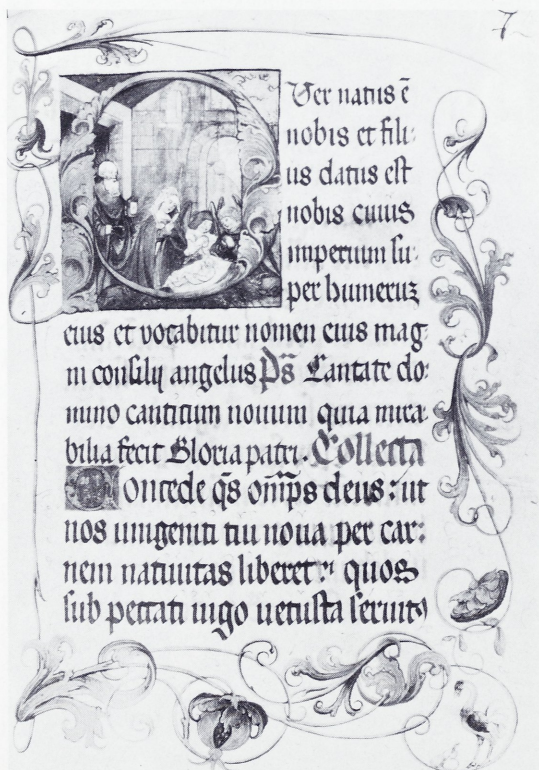 7
Uer natus ē
nobis et fili-
us datus est
nobis cuius
imperium su-
per humeruʒ
eius et vocabitur nomen eius mag-
ni consilij angelus Ps̄ Cantate do-
mino canticum nouum quia mira-
bilia fecit Gloria patri. Collecta
Concede qs̄ om̄ps deus: ut
nos unigeniti tui noua per car-
nem natiuitas liberet: quos
sub peccati iugo uetusta seruit9